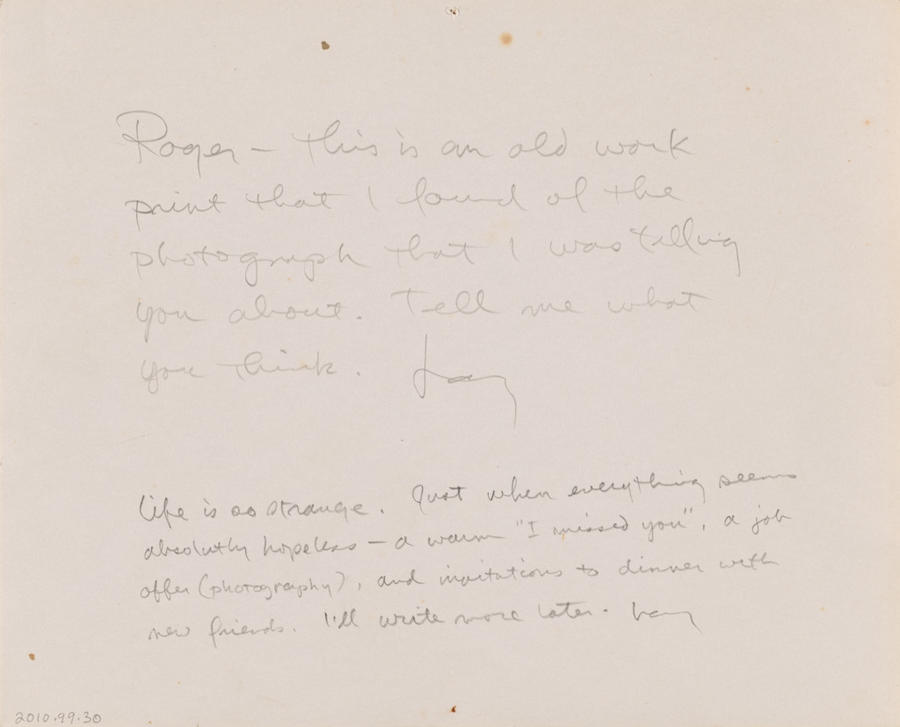 Roger – this is an old work
print that I found of the
photograph that I was telling
you about. Tell me what
you think.
life is so strange. Just when everything seems
absolutly hopeless – a warm "I missed you", a job
offer (photography), and invitations to dinner with
new friends. I'll write more later.
2010.99.30